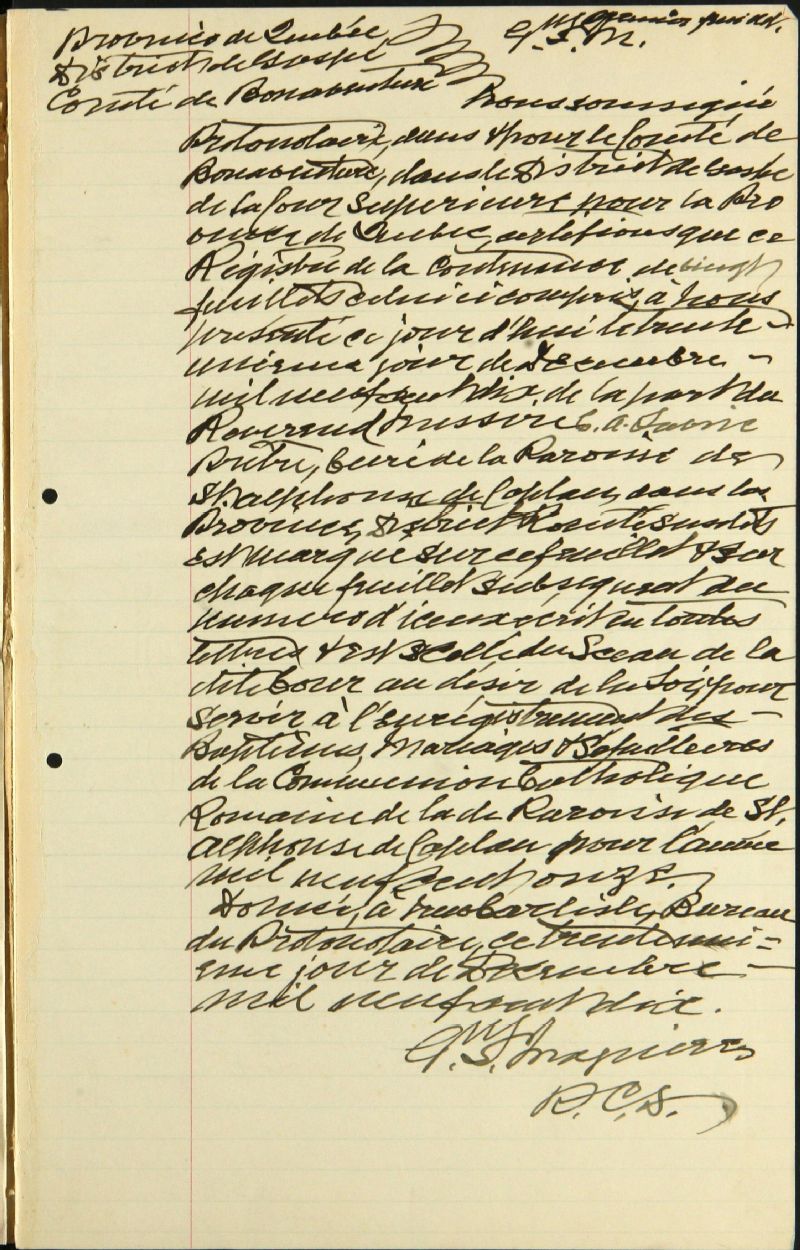 Province de Québec
District de Gaspé
Comté de Bonaventure
premier feuillet.
G. S. M.
Nous soussigné
Protonotaire, dans & pour le Comté de
Bonaventure, dans le District de Gaspé
de la Cour Superieure pour la Pro
vince de Quebec, certifions que ce
Régistre de la contenance de vingt
feuillets celui ici compris, à nous
presenté ce jour d'hui le trente-
unieme jour de Decembre-
mil neuf cent dix, de la part du
Reverend Messire
Prêtre, Curé de la Paroisse de
St. Alphonse de Caplan, dans les
Province, District & Comté susdits
est marqué sur ce feuillet & sur
chaque feuillet subsequent du
numero d'iceux écrit en toutes
lettres & est scellé du Sceau de la
dite Cour au désir de la Loi, pour
servir à l'enrégistrement des-
Baptêmes, Mariages & Sépultures
de la Communion Catholique
Romaine de la de Paroisse de St.
Alphonse de Caplan pour l'année
mil neuf cent onze.
Donné, à New Carlisle, Bureau
du Protonotaire, ce trente uni=
eme jour de Decembre-
mil neuf cent dix.
P. C. S.